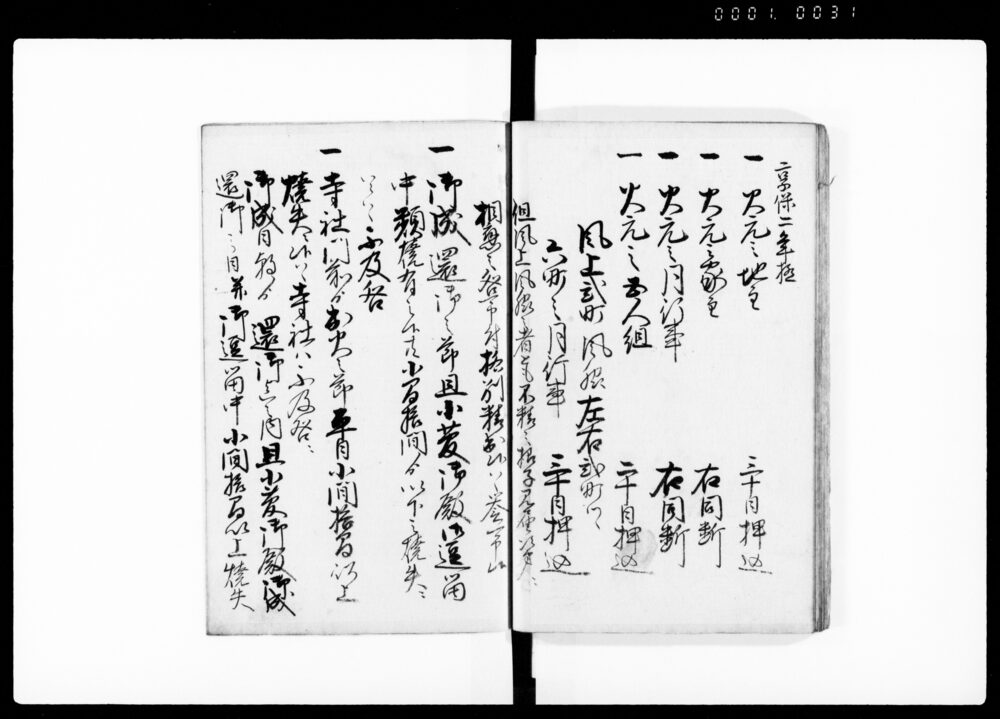 0001.0031
享保二年極
一 火元之地主 三十日押込
一 火元之家主 右同断
一 火元之月行事 右同断
一 火元之五人組 二十日押込
風上弐町風脇左右弐町ツヽ
六町之月行事 三十日押込
但風上風脇之者とも不精之様子
相応之咎可申付格別精出候ハヽ
一 御成還御之節且小菅御殿御逗留
中類焼有之候共小間拾間より以下之焼失ニ
候ハヽ不及咎
一 寺社門前より出火之節 平日小間拾間以上
焼失候ハヽ寺社ハ不及咎
御成日朝より還御迄之内且小菅御殿御成
還御之日并御逗留中小間拾間以上焼失